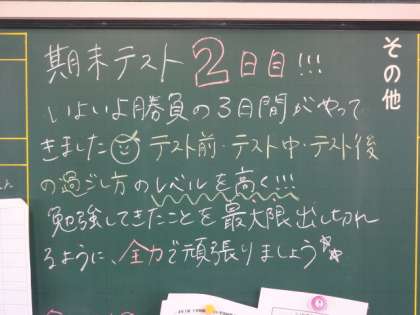 その他
期末テスト2日目!!!
いよいよ勝負の3日間がやって
きました テスト前・テスト中・テスト後
の過ごし方のレベルを高く!!!
勉強してきたことを最大限出しきれ
るように、全力で頑張りましょう